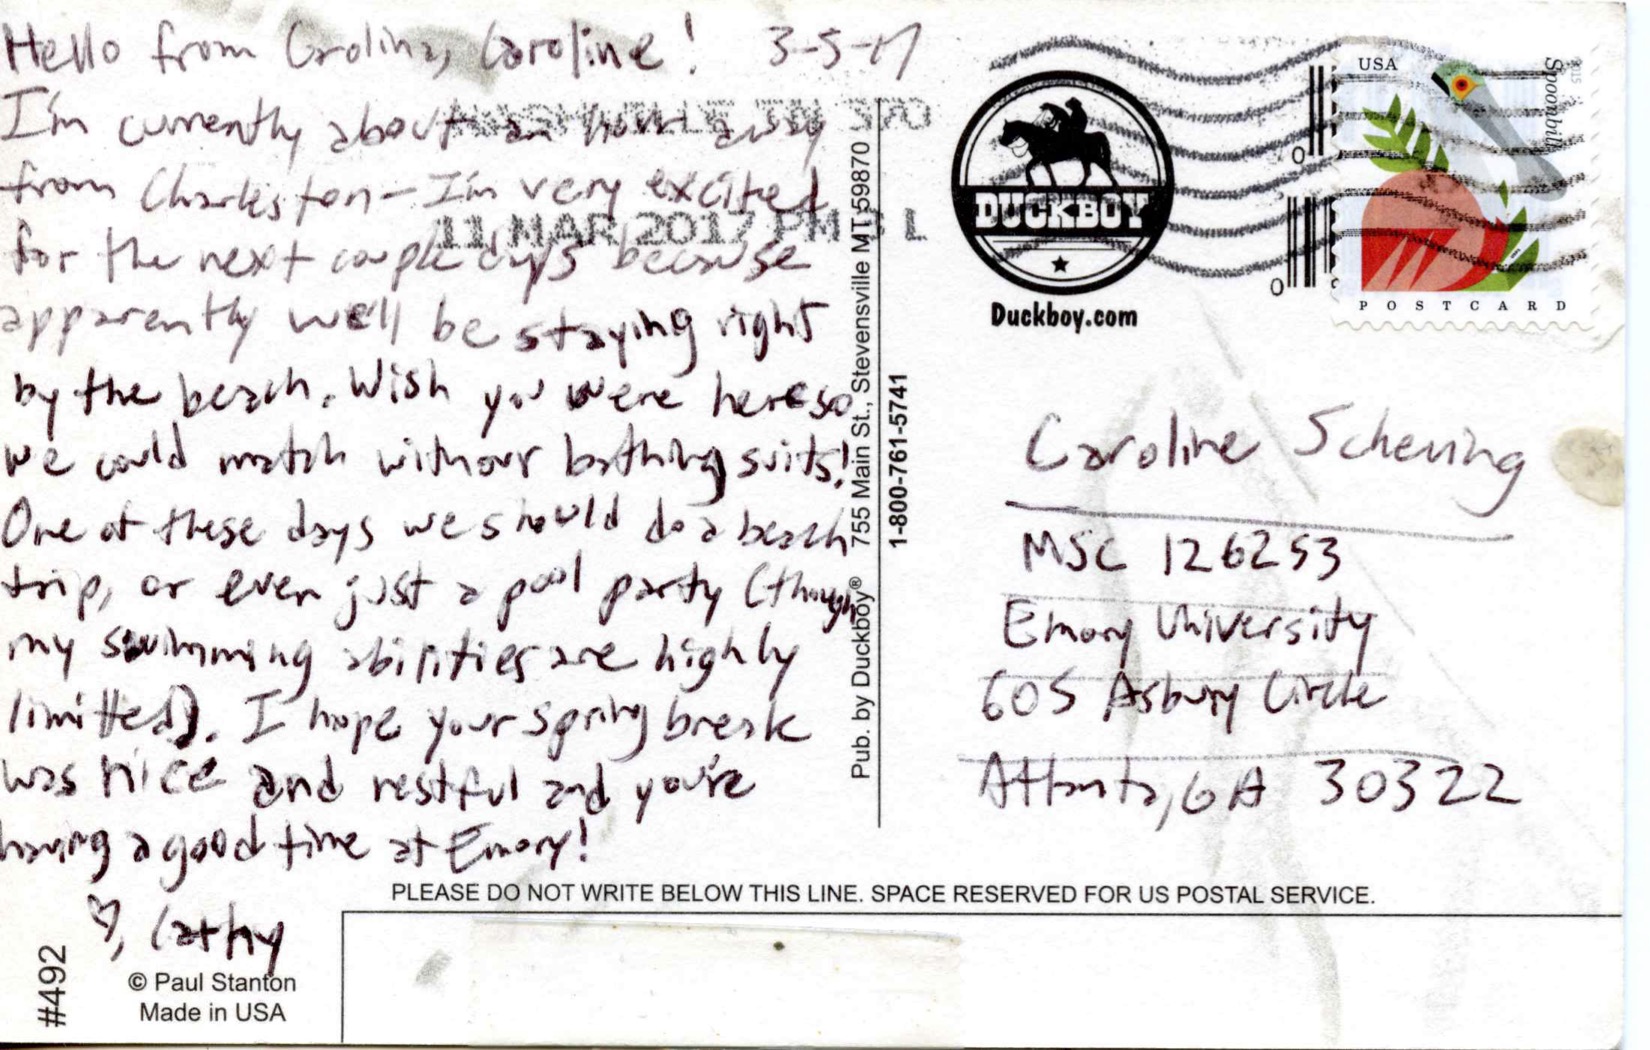 Hello from Carolina, Caroline! 3-5-17
I'm currently about an hour away
from Charleston - I'm very excited
for the next couple days because
apparently we'll be staying right
by the beach. Wish you were here so
we could match with our bathing suits!
One of these days we should do a beach
trip, or even just a pool party (though
my swimming abilities are highly
limitted). I hope your spring break
was nice and restful and you're
having a good time at Emory!
♡, Cathy
#492
© Paul Stanton
Made in USA
NASHVILLE TN 370
11 MAR 2017 PM 3 L
Pub. by Duckboy® 755 Main St., Stevensville MT 59870
1-800-761-5741
DUCKBOY
Duckboy.com
USA
Spoonbill
2015
POSTCARD
Caroline Scheuing
MSC 126253
Emory University
605 Asbury Circle
Atlanta, GA 30322
PLEASE DO NOT WRITE BELOW THIS LINE. SPACE RESERVED FOR US POSTAL SERVICE.